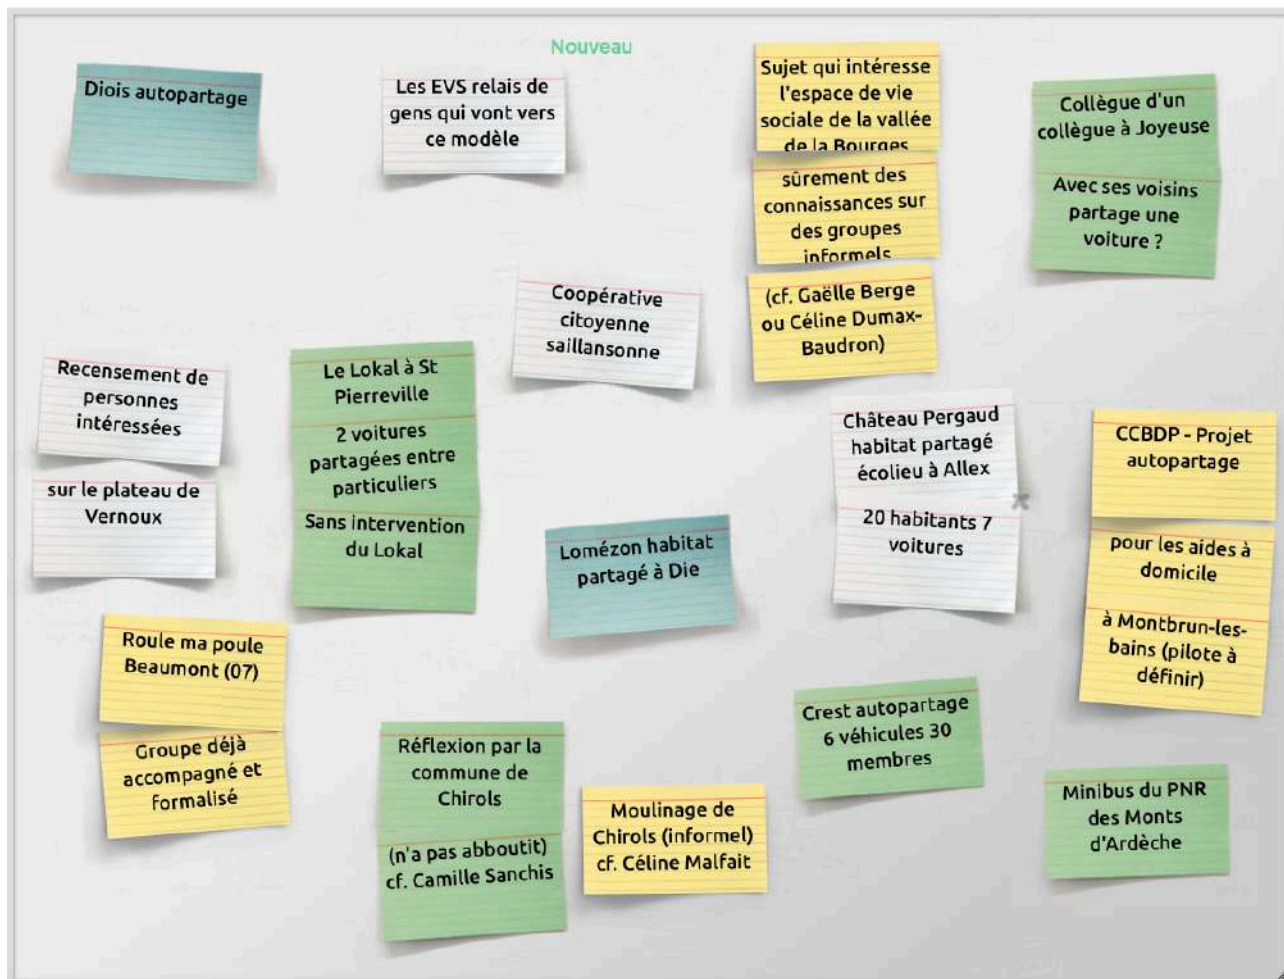 Nouveau
Diois autopartage
Les EVS relais de
gens qui vont vers
ce modèle
Sujet qui intéresse
l'espace de vie
sociale de la vallée
de la Bourges
sûrement des
connaissances sur
des groupes
informels
(cf. Gaëlle Berge
ou Céline Dumax-
Baudron)
Collègue d'un
collègue à Joyeuse
Avec ses voisins
partage une
voiture ?
Coopérative
citoyenne
saillansonne
Recensement de
personnes
intéressées
sur le plateau de
Vernoux
Le Lokal à St
Pierreville
2 voitures
partagées entre
particuliers
Sans intervention
du Lokal
Lomézon habitat
partagé à Die
Château Pergaud
habitat partagé
écolieu à Allex
20 habitants 7
voitures
CCBDP - Projet
autopartage
pour les aides à
domicile
à Montbrun-les-
bains (pilote à
définir)
Roule ma poule
Beaumont (07)
Groupe déjà
accompagné et
formalisé
Réflexion par la
commune de
Chirols
(n'a pas abboutit)
cf. Camille Sanchis
Moulinage de
Chirols (informel)
cf. Céline Malfait
Crest autopartage
6 véhicules 30
membres
Minibus du PNR
des Monts
d'Ardèche